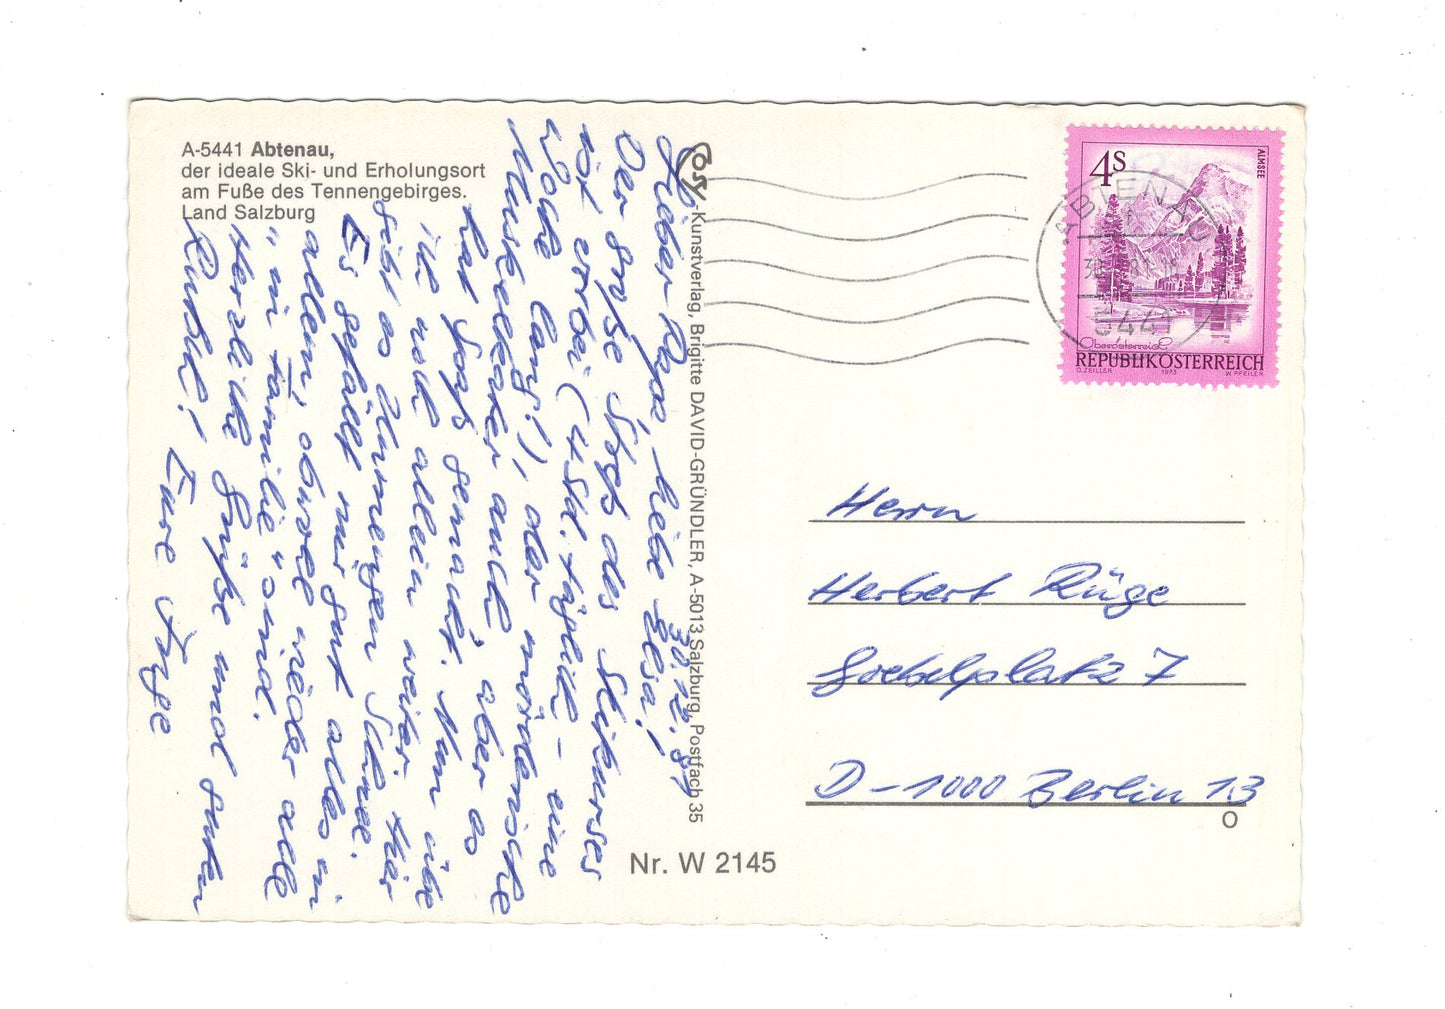 A-5441 Abtenau,
der ideale Ski- und Erholungsort
am Fuße des Tennengebirges.
Land Salzburg
30.12.81
Lieber Papi, liebe Elsa!
Der große Streß des Skikurses
ist vorbei (4 Std. täglich - eine
Woche lang!), der mörderische
Muskelkater auch, aber es
hat Spaß gemacht. Nun übe
ich noch allein weiter. Hier
gibt es Unmengen Schnee.
Es gefällt mir gut alles in
allem, obwohl wieder alle
"in Familie" sind.
Herzliche Grüße und guten
Rutsch! Eure Inge
Cosy-Kunstverlag, Brigitte DAVID-GRÜNDLER, A-5013 Salzburg, Postfach 35
Nr. W 2145
4S
ALMSEE
Oberösterreich
REPUBLIK ÖSTERREICH
O. ZEILLER 1973 W. PFEILER
ABTENAU
5441
Herrn
Herbert Rüge
Goebelplatz 7
D-1000 Berlin 13
O